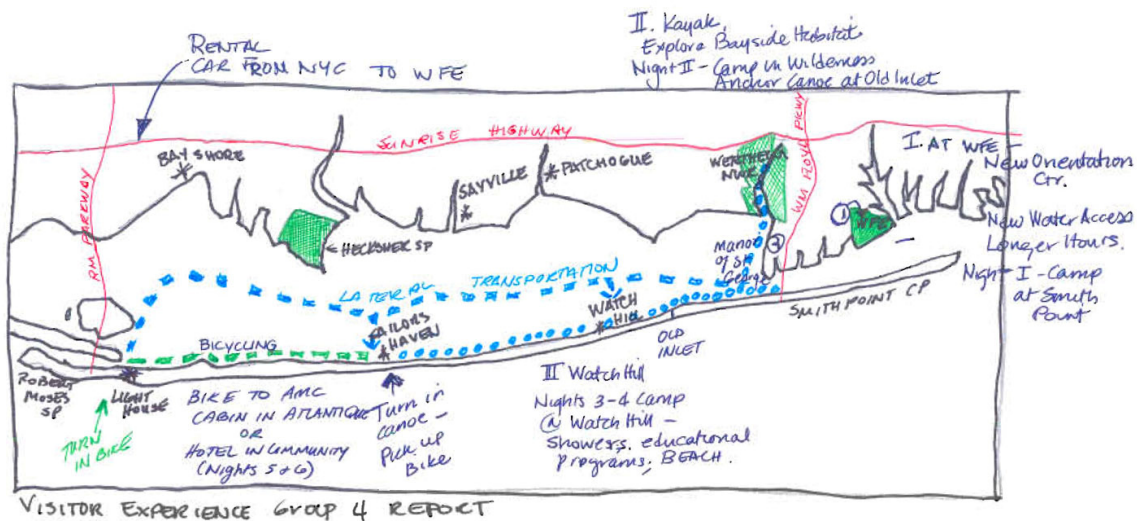 RENTAL
CAR FROM NYC TO WFE
II. Kayak,
Explore Bayside Habitats
Night II - Camp in Wilderness
Anchor Canoe at Old Inlet
RM PARKWAY
SUNRISE HIGHWAY
BAY SHORE
SAYVILLE
PATCHOGUE
WERTHEIM
NWR
WM FLOYD PKWY
I. AT WFE -
New Orientation
Ctr.
New Water Access
Longer Hours.
Night I - Camp
at Smith
Point
1
WFE
2
Manor
of St
George
← HECKSHER SP
LATERAL TRANSPORTATION
SAILORS
HAVEN
WATCH
HILL
SMITH POINT CP
OLD
INLET
BICYCLING
ROBERT
MOSES
SP
LIGHT
HOUSE
TURN
IN BIKE
BIKE TO AMC
CABIN IN ATLANTIQUE
OR
HOTEL IN COMMUNITY
(Nights 5 + 6)
Turn in
canoe -
Pick up
Bike
III Watch Hill
Nights 3-4 Camp
@ Watch Hill -
Showers, educational
programs, BEACH.
VISITOR EXPERIENCE GROUP 4 REPORT